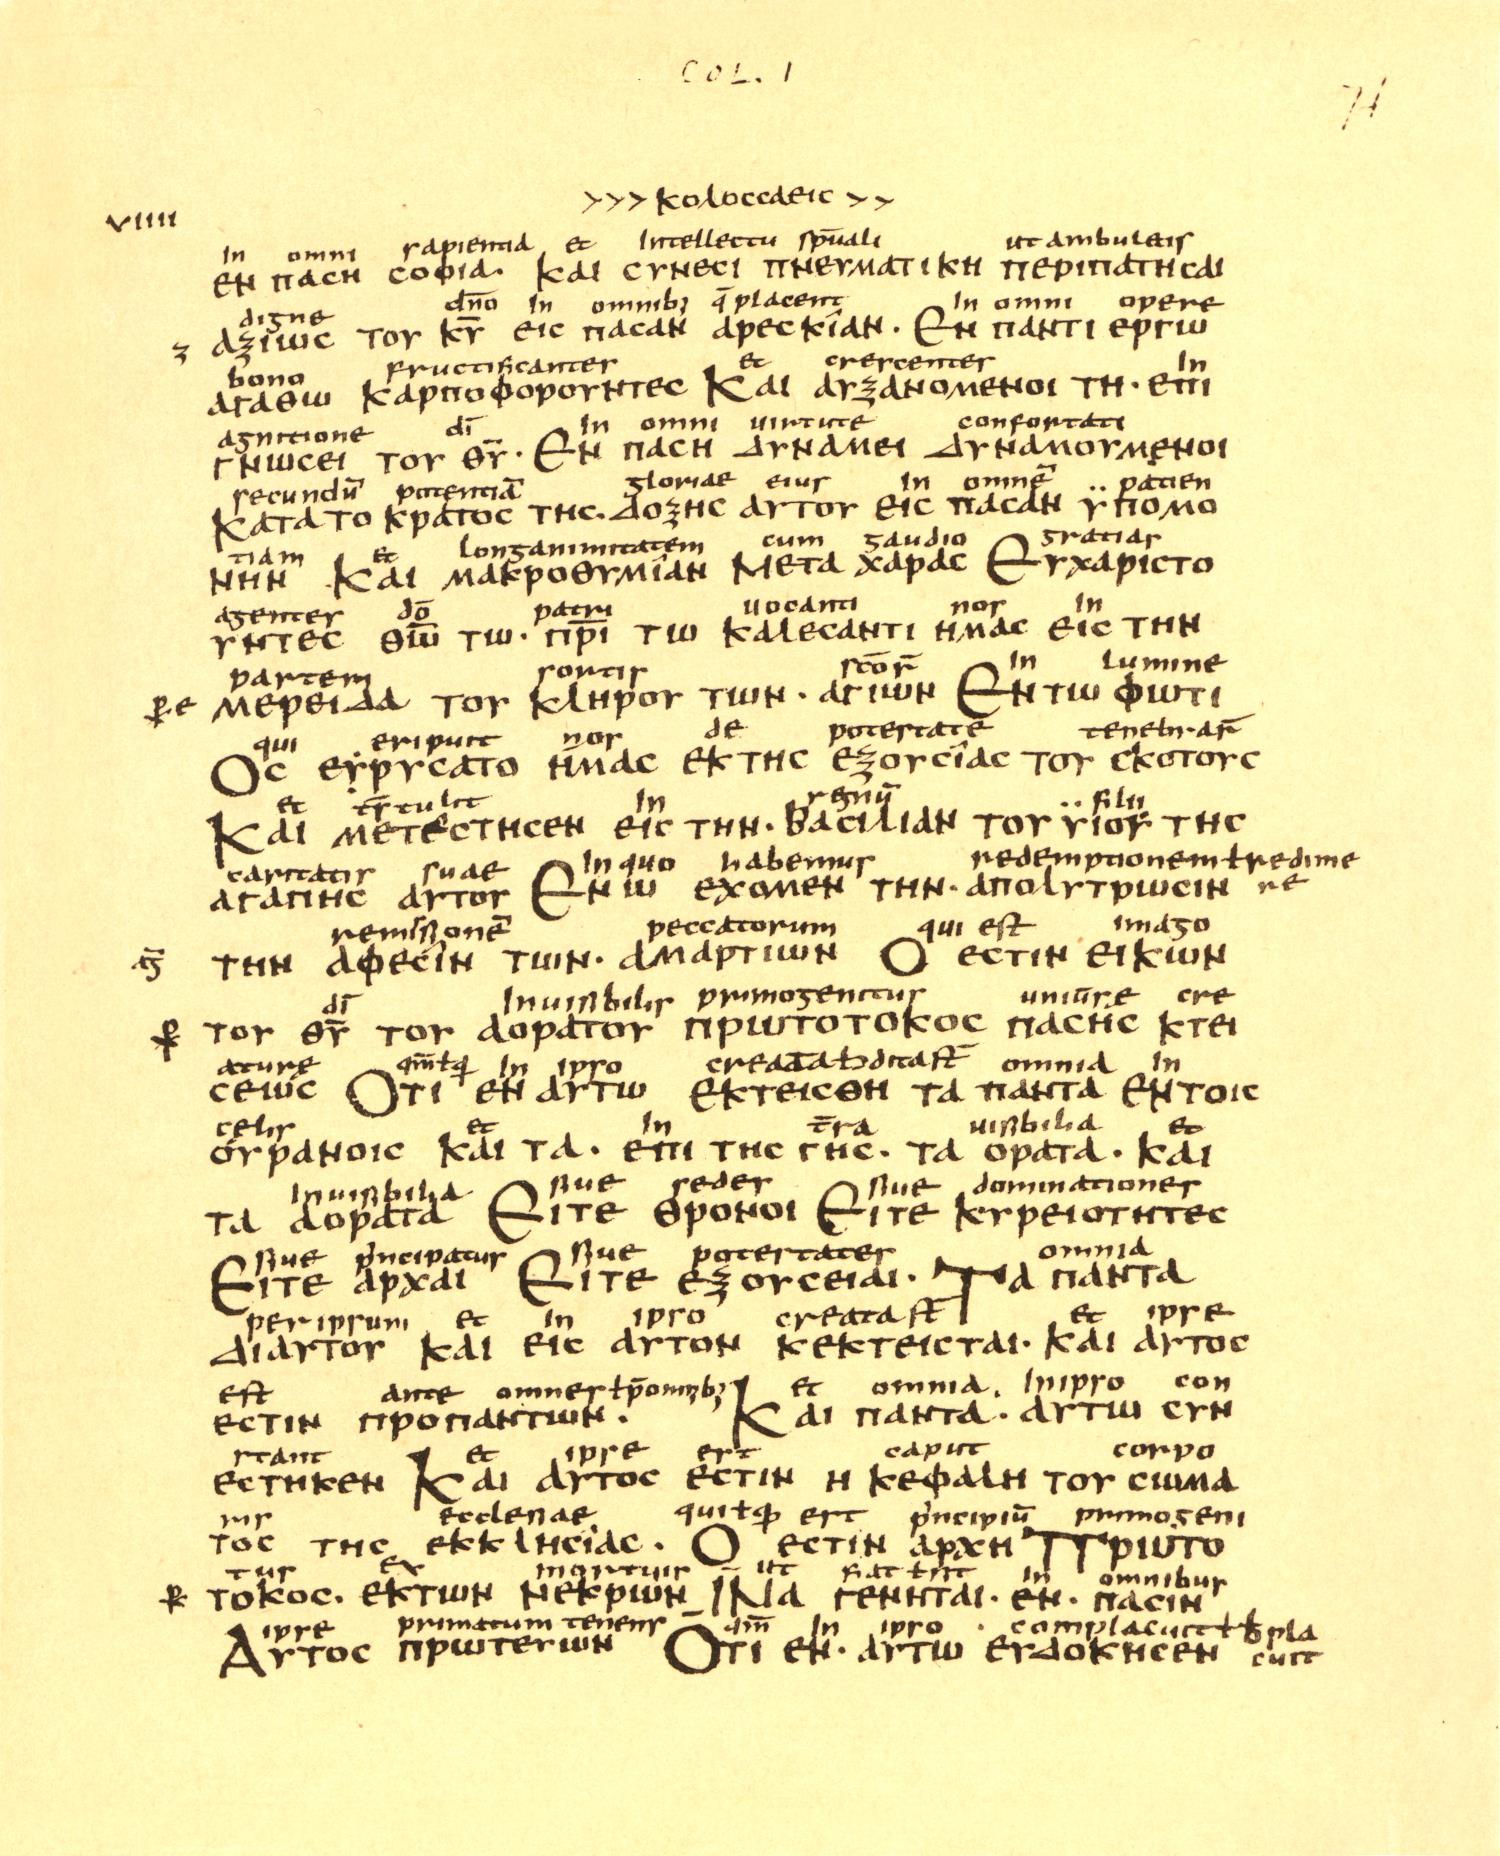 COL. I
74
>>> κολοссαεις >>
VIIII
In omni sapientia et Intellectu sp̄uali ut ambuletis
εν παση σοφια· Και συνεσι πνευματικη περιπατησαι
digne dn̄o In omnibꝫ q̄ placent In omni opere
ꝫ αξιως του κ̄ῡ εις πασαν αρεσκιαν· Εν παντι εργω
bono fructificantes et crescentes In
αγαθω καρποφορουντες Και αυξανομενοι τη· επι
agnitione dī In omni uirtute confortati
γνωσει του θ̄ῡ· Εν παση δυναμει δυναμουμενοι
secundū potentiā gloriae eius In omnē patien
Κατα το κρατος της· δοξης αυτου εις πασαν ϋπομο
tiam et longanimitatem cum gaudio gratias
νην Και μακροθυμιαν Μετα χαρας Ευχαριστο
agentes dō patri uocanti nos In
υντες θ̄ω̄ τω· π̄ρ̄ι τω καλεσαντι ημας εις την
partem sortis sc̄ōr̄ In lumine
μερειδα του κληρου των· αγιων Εν τω φωτι
qui eripuit nos de potestate tenebrar̄
Ος ερυρυσατο ημας εκ της εξουσιας του σκοτους
et tr̄tulit In regnū filii
Και μετεστησεν εις την· βασιλιαν του ϋιου της
caritatis suae In quo habemus redemptionem ł redime
αγαπης αυτου Εν ω εχομεν την· απολυτρωσειν ne
remissionē peccatorum qui est imago
την αφεσιν των· αμαρτιων Ο εστιν εικων
dī Inuisibilis primogenitus uniūse cre
του θ̄ῡ του αορατου πρωτοτοκος πασης κτει
ature In ipso omnia In
σεως Οτι εν αυτω εκτεισθη τα παντα εν τοις
celis et In t̄ra uisibilia et
ουρανοις και τα· επι της γης· τα ορατα· και
Inuisibilia siue sedes siue dominationes
τα αορατα Ειτε θρονοι Ειτε κυρειοτητες
siue pncipatus siue potestates omnia
Ειτε αρχαι Ειτε εξουσειαι· Τα παντα
per ipsum et In ipso creata st̄ et ipse
διαυτου και εις αυτον κεκτεισται· και αυτος
est ante omnes ł p̄ omibꝫ et omnia. In ipso con
εστιν προπαντων· Και παντα· αυτω συν
stant et ipse est caput corpo
εστηκεν Και αυτος εστιν η κεφαλη του σωμα
ris ecclesiae qui ł est pncipiū primogeni
τος της εκκλησιας· Ο εστιν αρχη Πρωτο
tus ex mortuis ut fiat ł sit in omnibus
τοκος· εκ των νεκρων Ινα γενηται· εν· πασιν
ipse primatum tenens qm̄ In ipso complacuit ł b pla
Αυτος πρωτευων Οτι εν· αυτω ευδοκησεν cuit